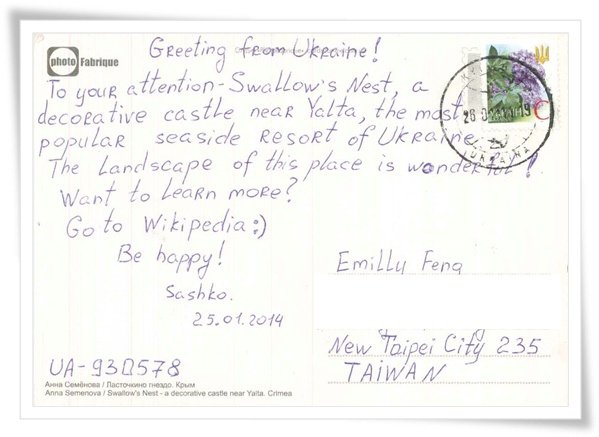 photo Fabrique
Greeting from Ukraine!
To your attention - Swallow's Nest, a
decorative castle near Yalta, the most
popular seaside resort of Ukraine.
The Landscape of this place is wonderful!
Want to learn more?
Go to Wikipedia:)
Be happy!
Sashko.
25.01.2014
UA-930578
Анна Семёнова / Ласточкино гнездо. Крым
Anna Semenova / Swallow's Nest - a decorative castle near Yalta. Crimea
UKRAINA
Emilly Feng
New Taipei City 235
TAIWAN